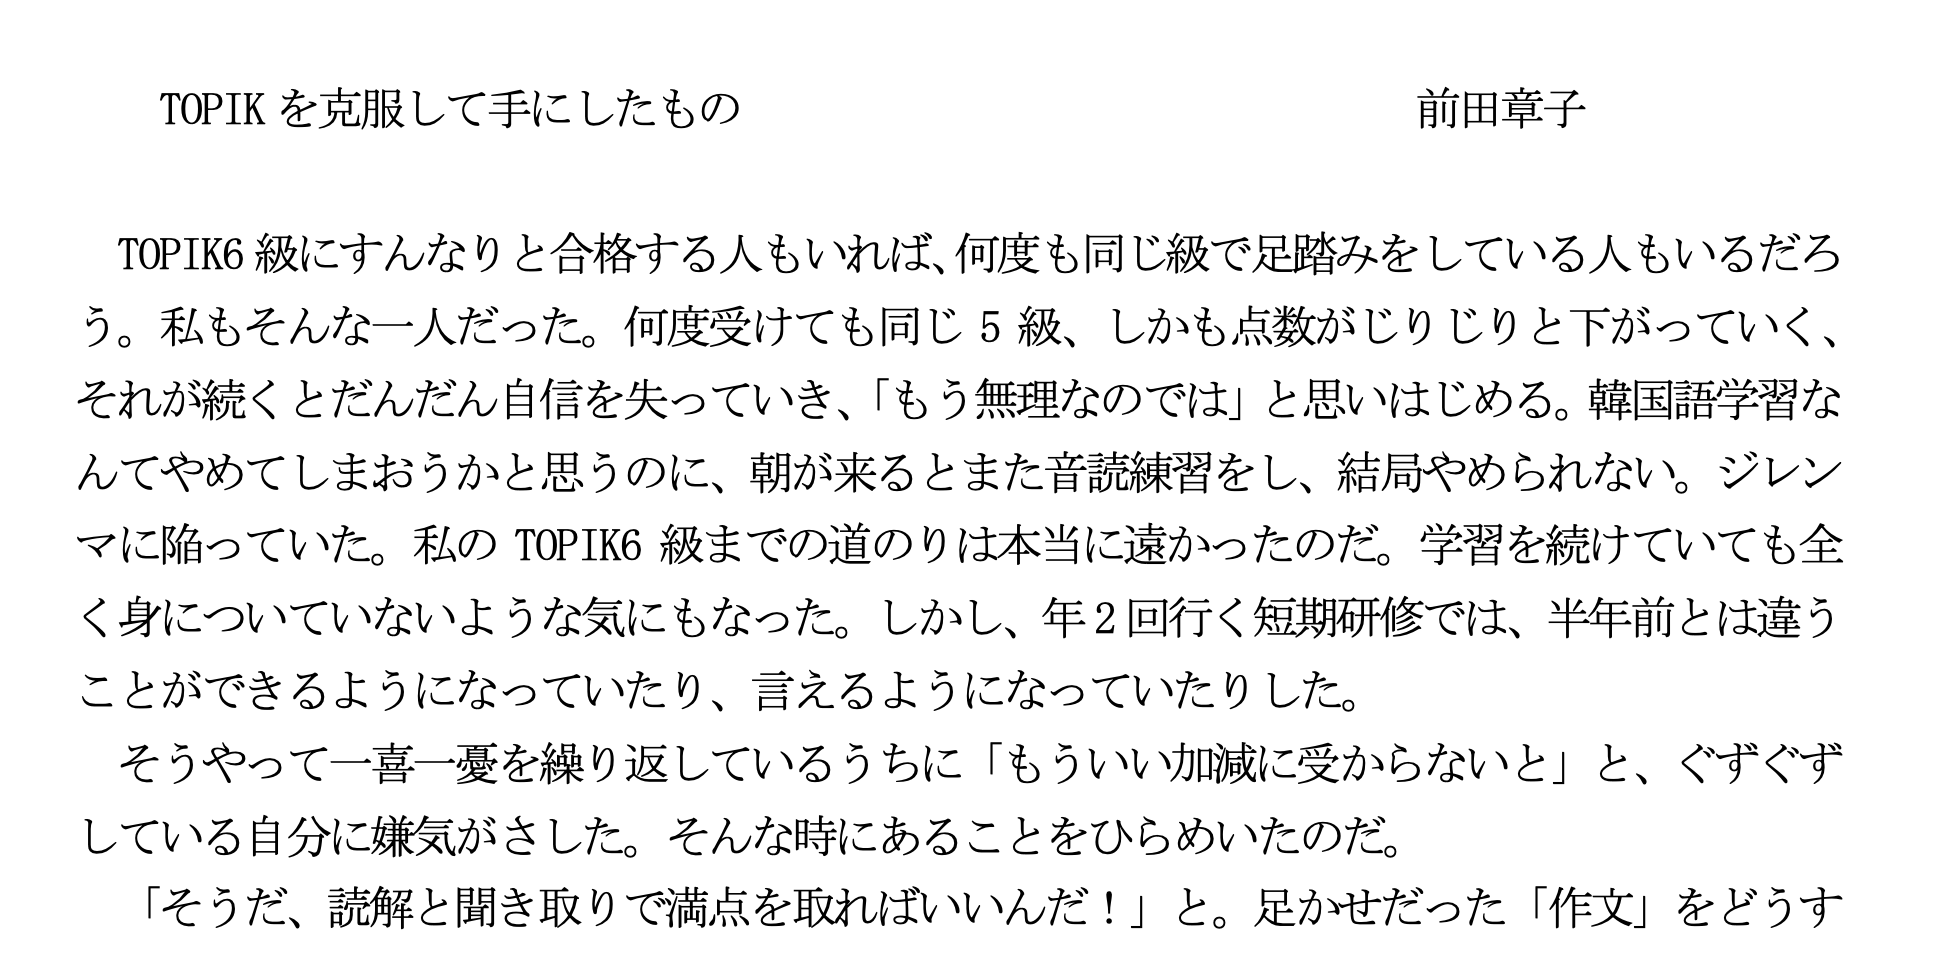 TOPIK を克服して手にしたもの　　　　前田章子
TOPIK6 級にすんなりと合格する人もいれば、何度も同じ級で足踏みをしている人もいるだろ
う。私もそんな一人だった。何度受けても同じ 5 級、しかも点数がじりじりと下がっていく、
それが続くとだんだん自信を失っていき、「もう無理なのでは」と思いはじめる。韓国語学習な
んてやめてしまおうかと思うのに、朝が来るとまた音読練習をし、結局やめられない。ジレン
マに陥っていた。私の TOPIK6 級までの道のりは本当に遠かったのだ。学習を続けていても全
く身についていないような気にもなった。しかし、年 2 回行く短期研修では、半年前とは違う
ことができるようになっていたり、言えるようになっていたりした。
そうやって一喜一憂を繰り返しているうちに「もういい加減に受からないと」と、ぐずぐず
している自分に嫌気がさした。そんな時にあることをひらめいたのだ。
「そうだ、読解と聞き取りで満点を取ればいいんだ！」と。足かせだった「作文」をどうす